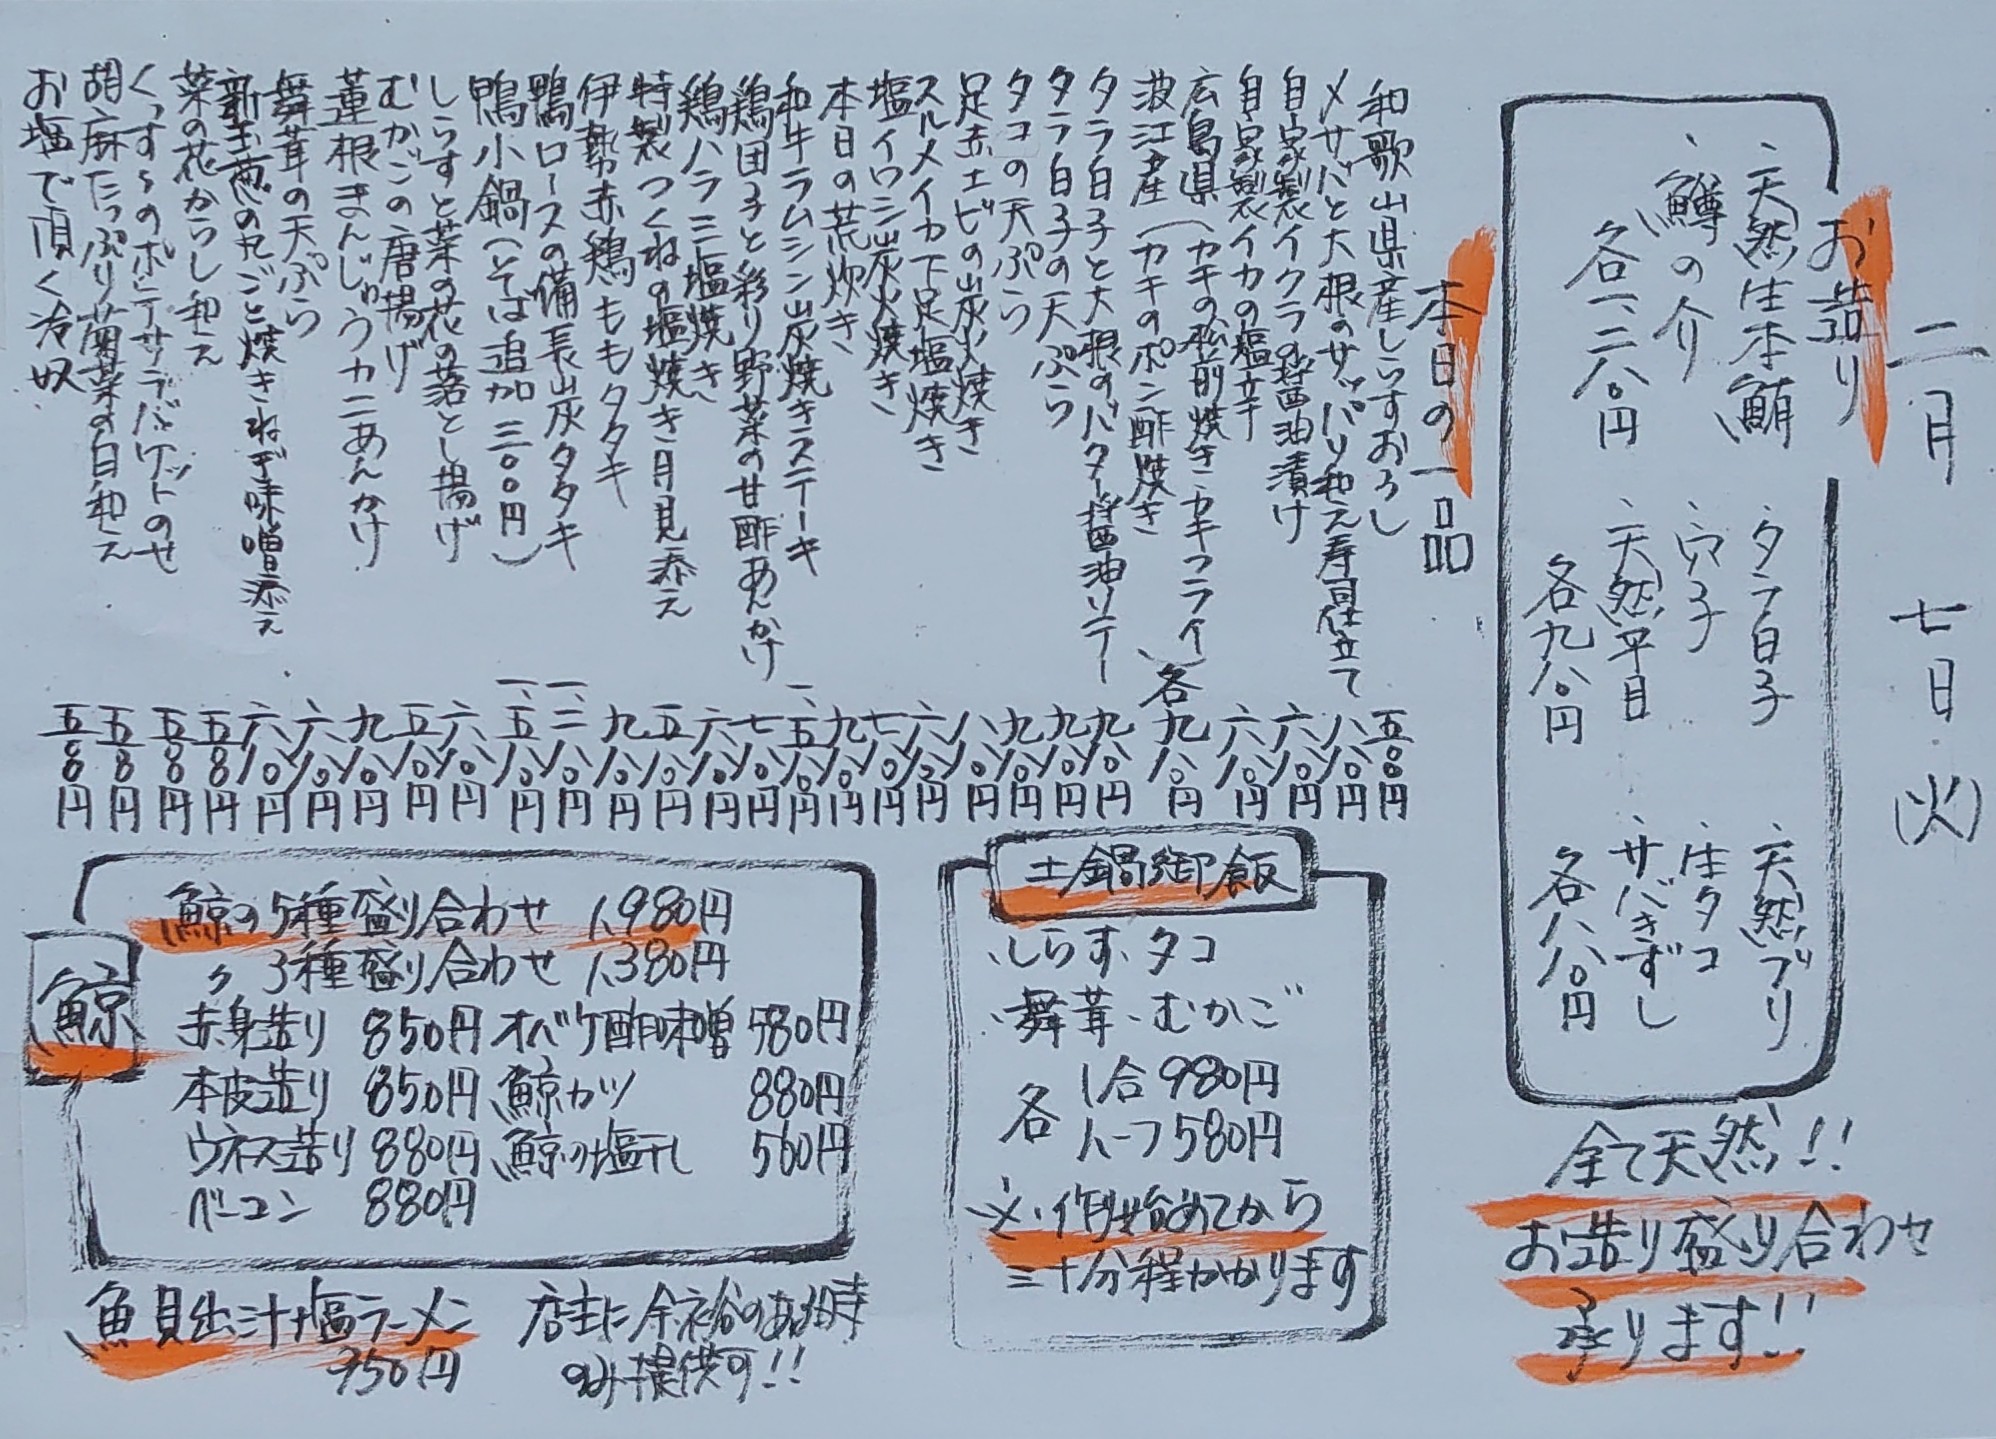 二月 七日 (火)
お造り
、天然生本鮪
、鱒の介
各一、二八〇円
、タラ白子
、穴子
、天然平目
各九八〇円
、天然ブリ
、生タコ
、サバきずし
各八八〇円
全て天然!!
お造り盛り合わせ
承ります!!
本日の一品
和歌山県産しらすおろし 五〇〇円
〆サバと大根のサッパリ和え寿司仕立て 八八〇円
自家製イクラの醤油漬け 六八〇円
自家製イカの塩辛 六八〇円
広島県(カキの松前焼き・カキフライ)
波江産(カキのポン酢焼き 各九八〇円
タラ白子と大根のバター醤油ソテー 九八〇円
タラ白子の天ぷら 九八〇円
タコの天ぷら 九八〇円
足赤エビの炭火焼き 八八〇円
スルメイカ下足塩焼き
塩イワシ炭火焼き 七八〇円
本日の荒炊き 九八〇円
和牛ラムシン炭焼きステーキ 一、五八〇円
鶏団子と彩り野菜の甘酢あんかけ 七八〇円
鶏ハラミ塩焼き 六八〇円
特製つくねの塩焼き月見添え 五八〇円
伊勢赤鶏ももタタキ 九八〇円
鴨ロースの備長炭タタキ 一、二八〇円
鴨小鍋(そば追加三〇〇円) 一、五八〇円
しらすと菜の花の落とし揚げ 六八〇円
むかごの唐揚げ 五八〇円
蓮根まんじゅうカニあんかけ 九八〇円
舞茸の天ぷら 六八〇円
新玉葱の丸ごと焼きねぎ味噌添え 六八〇円
菜の花からし和え 五八〇円
くっすぅのポテサラバケットのせ 五八〇円
胡麻たっぷり菊菜の白和え 五八〇円
お塩で頂く冷奴 五八〇円
土鍋御飯
、しらす、タコ
、舞茸、むかご
各 1合980円
ハーフ580円
※、作り始めてから
三十分程かかります
鯨
鯨の5種盛り合わせ 1,980円
〃 3種盛り合わせ 1,380円
赤身造り 850円 オバケ酢味噌 580円
本皮造り 850円 鯨カツ 880円
ウネス造り 880円 鯨の塩干し 560円
ベーコン 880円
魚貝出汁塩ラーメン
750円
店主に余裕のある時
のみ提供可!!